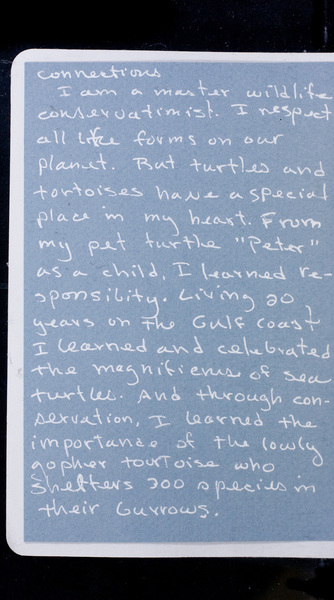 connections
I am a master wildlife
conservatimist. I respect
all life forms on our
planet. But turtles and
tortoises have a special
place in my heart. From
my pet turthe "Peter"
as a child, I learned re-
sponsibity. Living 20
years on the Gulf coast
I learned and celebrated
the magnificms of sea
turtles. And through con-
servation, I learned the
importance of the lowly
gopher tourtoise who
shelters 300 species in
their burrows.